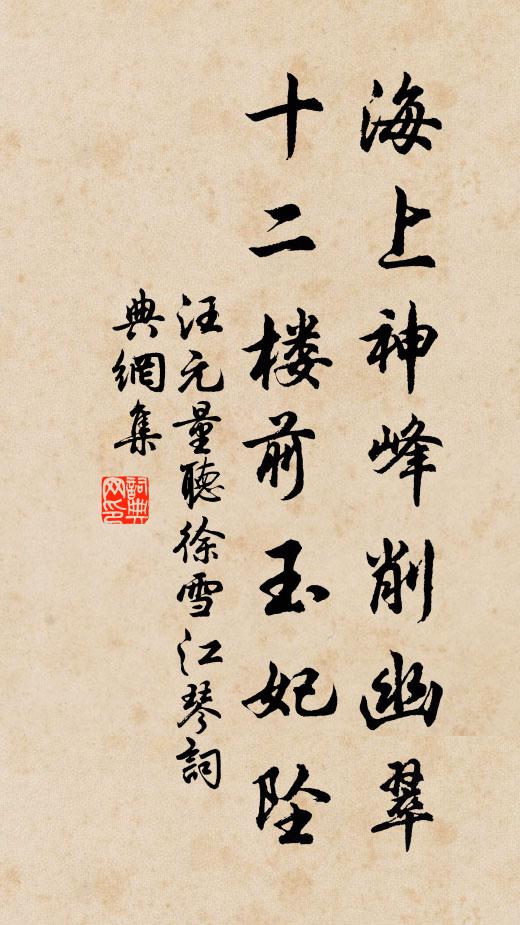 海上神峰削幽翠
十二楼前玉妃坠
汪元量聽徐雪江琴詞
典網集
詞典网印